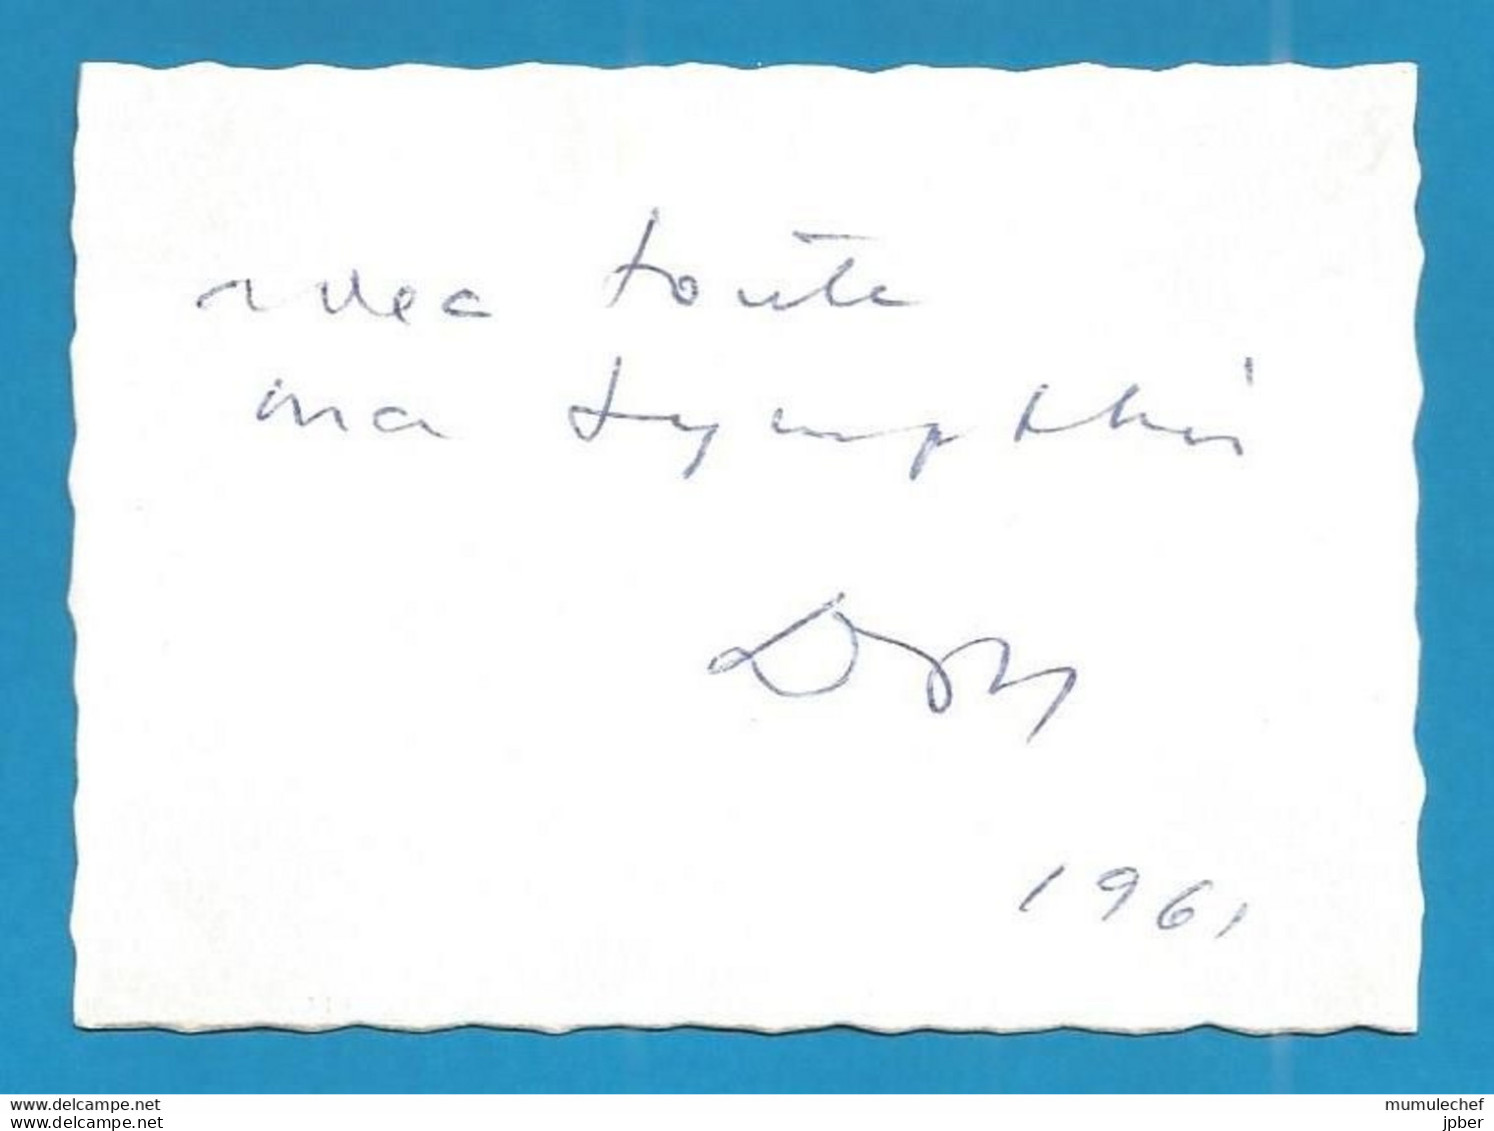 avec toute
ma sympathie
1961
www.delcampe.net mumulechef
www.delcampe.net jpber